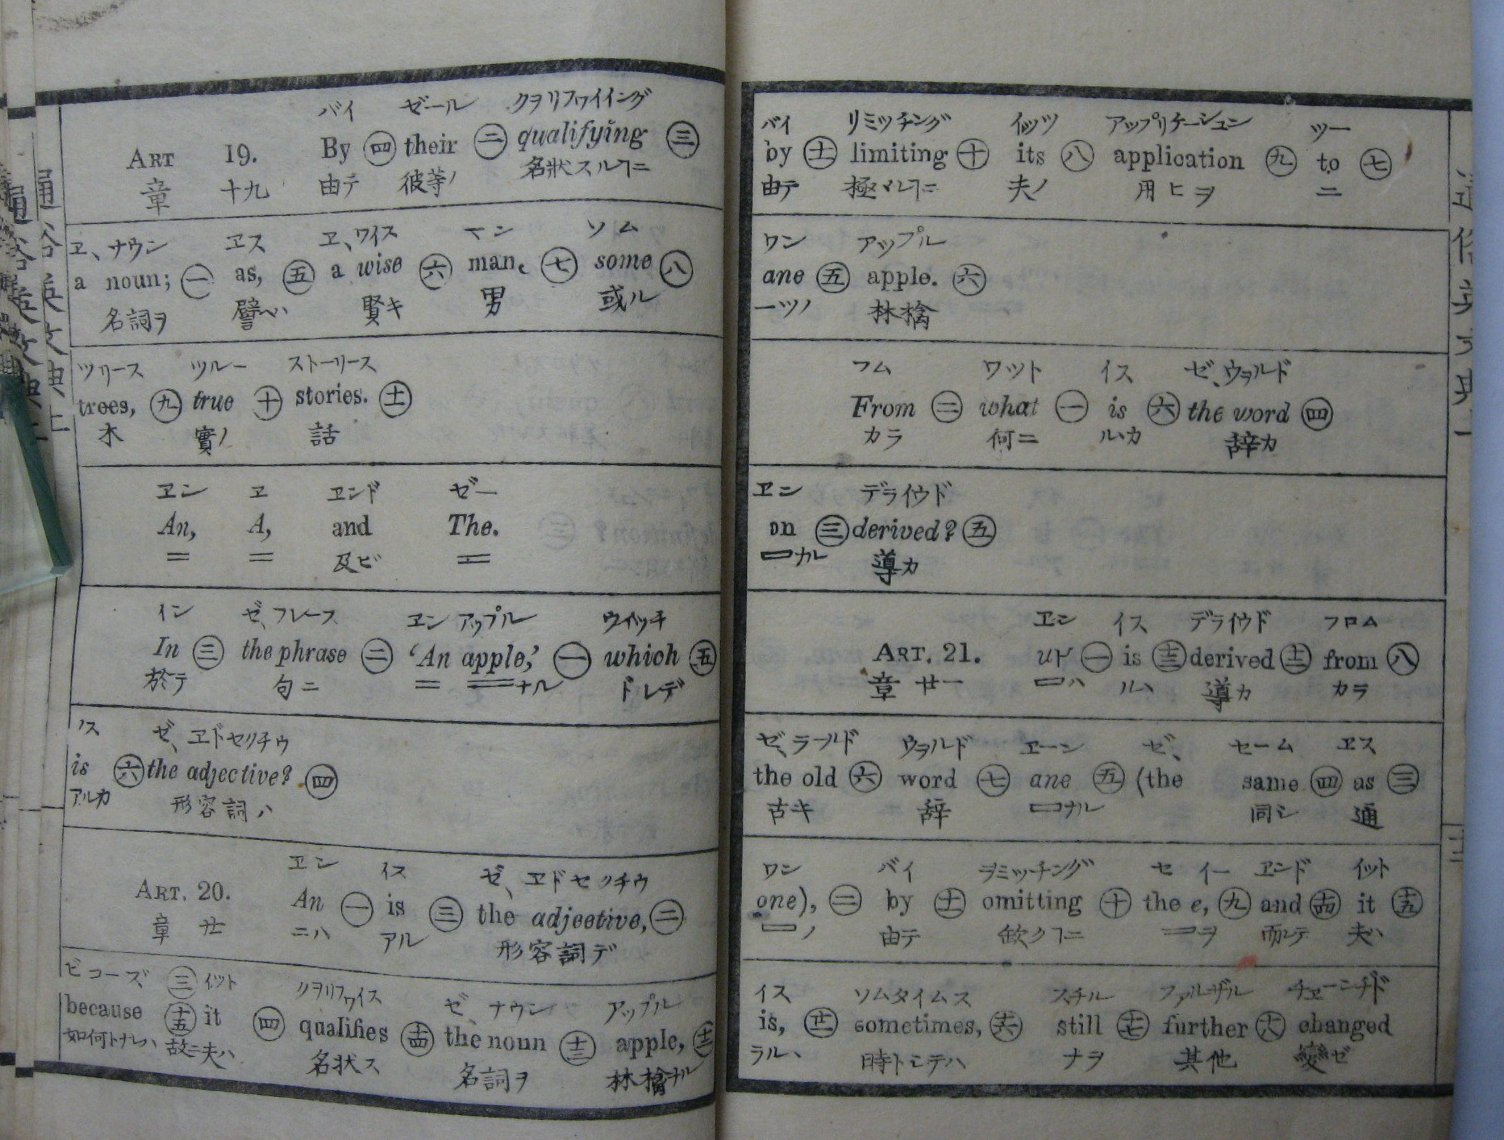 バイ ゼール クヲリフワイイング
ART 19. By ㊃ their ㊁ qualifying ㊂
章 十九 由テ 彼等ノ 名狀スルヿニ
ヱ、ナウン ヱス ヱ、ワイス マン ソム
a noun; ㊀ as, ㊄ a wise ㊅ man, ㊆ some ㊇
名詞ヲ 譬ヘハ 賢キ 男 或ル
ツリース ツルー ストーリース
trees, ㊈ true ㊉ stories. ⑪
木 實ノ 話
ヱン ヱ ヱンド ゼー
An, A, and The.
〓 〓 及ビ 〓
イン ゼ、フレース ヱン アップル ウイッチ
In ㊂ the phrase ㊁ ‘An apple,’ ㊀ which ㊄
於テ 句ニ 〓 〓ナル ドレデ
イス ゼ、ヱドセクチウ
is ㊅ the adjective? ㊃
アルカ 形容詞ハ
ヱン イス ゼ、ヱドセクチウ
ART. 20. An ㊀ is ㊂ the adjective, ㊁
章 廿 ニハ アル 形容詞デ
ビコーズ イット クヲリフワイス ゼ、ナウン アップル
because it ㊃ qualifies ⑭ the noun ⑬ apple,
如何トナレハ 故ニ夫ハ 名狀ス 名詞ヲ 林檎ナル
バイ リミッチング イッツ アップリケーシュン ツー
by ⑪ limiting ㊉ its ㊇ application ㊈ to ㊆
由テ 極マルヿニ 夫ノ 用ヒヲ ニ
ワン アップル
ane ㊄ apple. ㊅
一ツノ 林檎
フム ワット イス ゼ、ウヲルド
From ㊁ what ㊀ is ㊅ the word ㊃
カラ 何ニ ルヽカ 辞カ
ヱン デライウド
on ㊂ derived? ㊄
ナル 導カ
ヱン イス デライウド フロム
ART. 21. ㊀ is ⑬ derived ⑫ from ㊇
章 廿一 ハ ルヽ 導カ カラ
ゼ、ヲールド ウヲルド ヱーン ゼ、 セーム ヱス
the old ㊅ word ㊆ ane ㊄ (the same ㊃ as ㊂
古キ 辞 ナル 同シ 通
ワン バイ ヲミッチング セ イー ヱンド イット
one), ㊁ by ⑪ omitting ㊉ the e, ㊈ and ⑭ it ⑮
ノ 由テ 欽クヿニ ヲ 而シテ 夫ハ
イス ソムタイムス スチル ファルザル チヱーンヂド
is, sometimes, ⑯ still ⑰ further changed
ラルヽ 時トシテハ ナヲ 其他 變ゼ